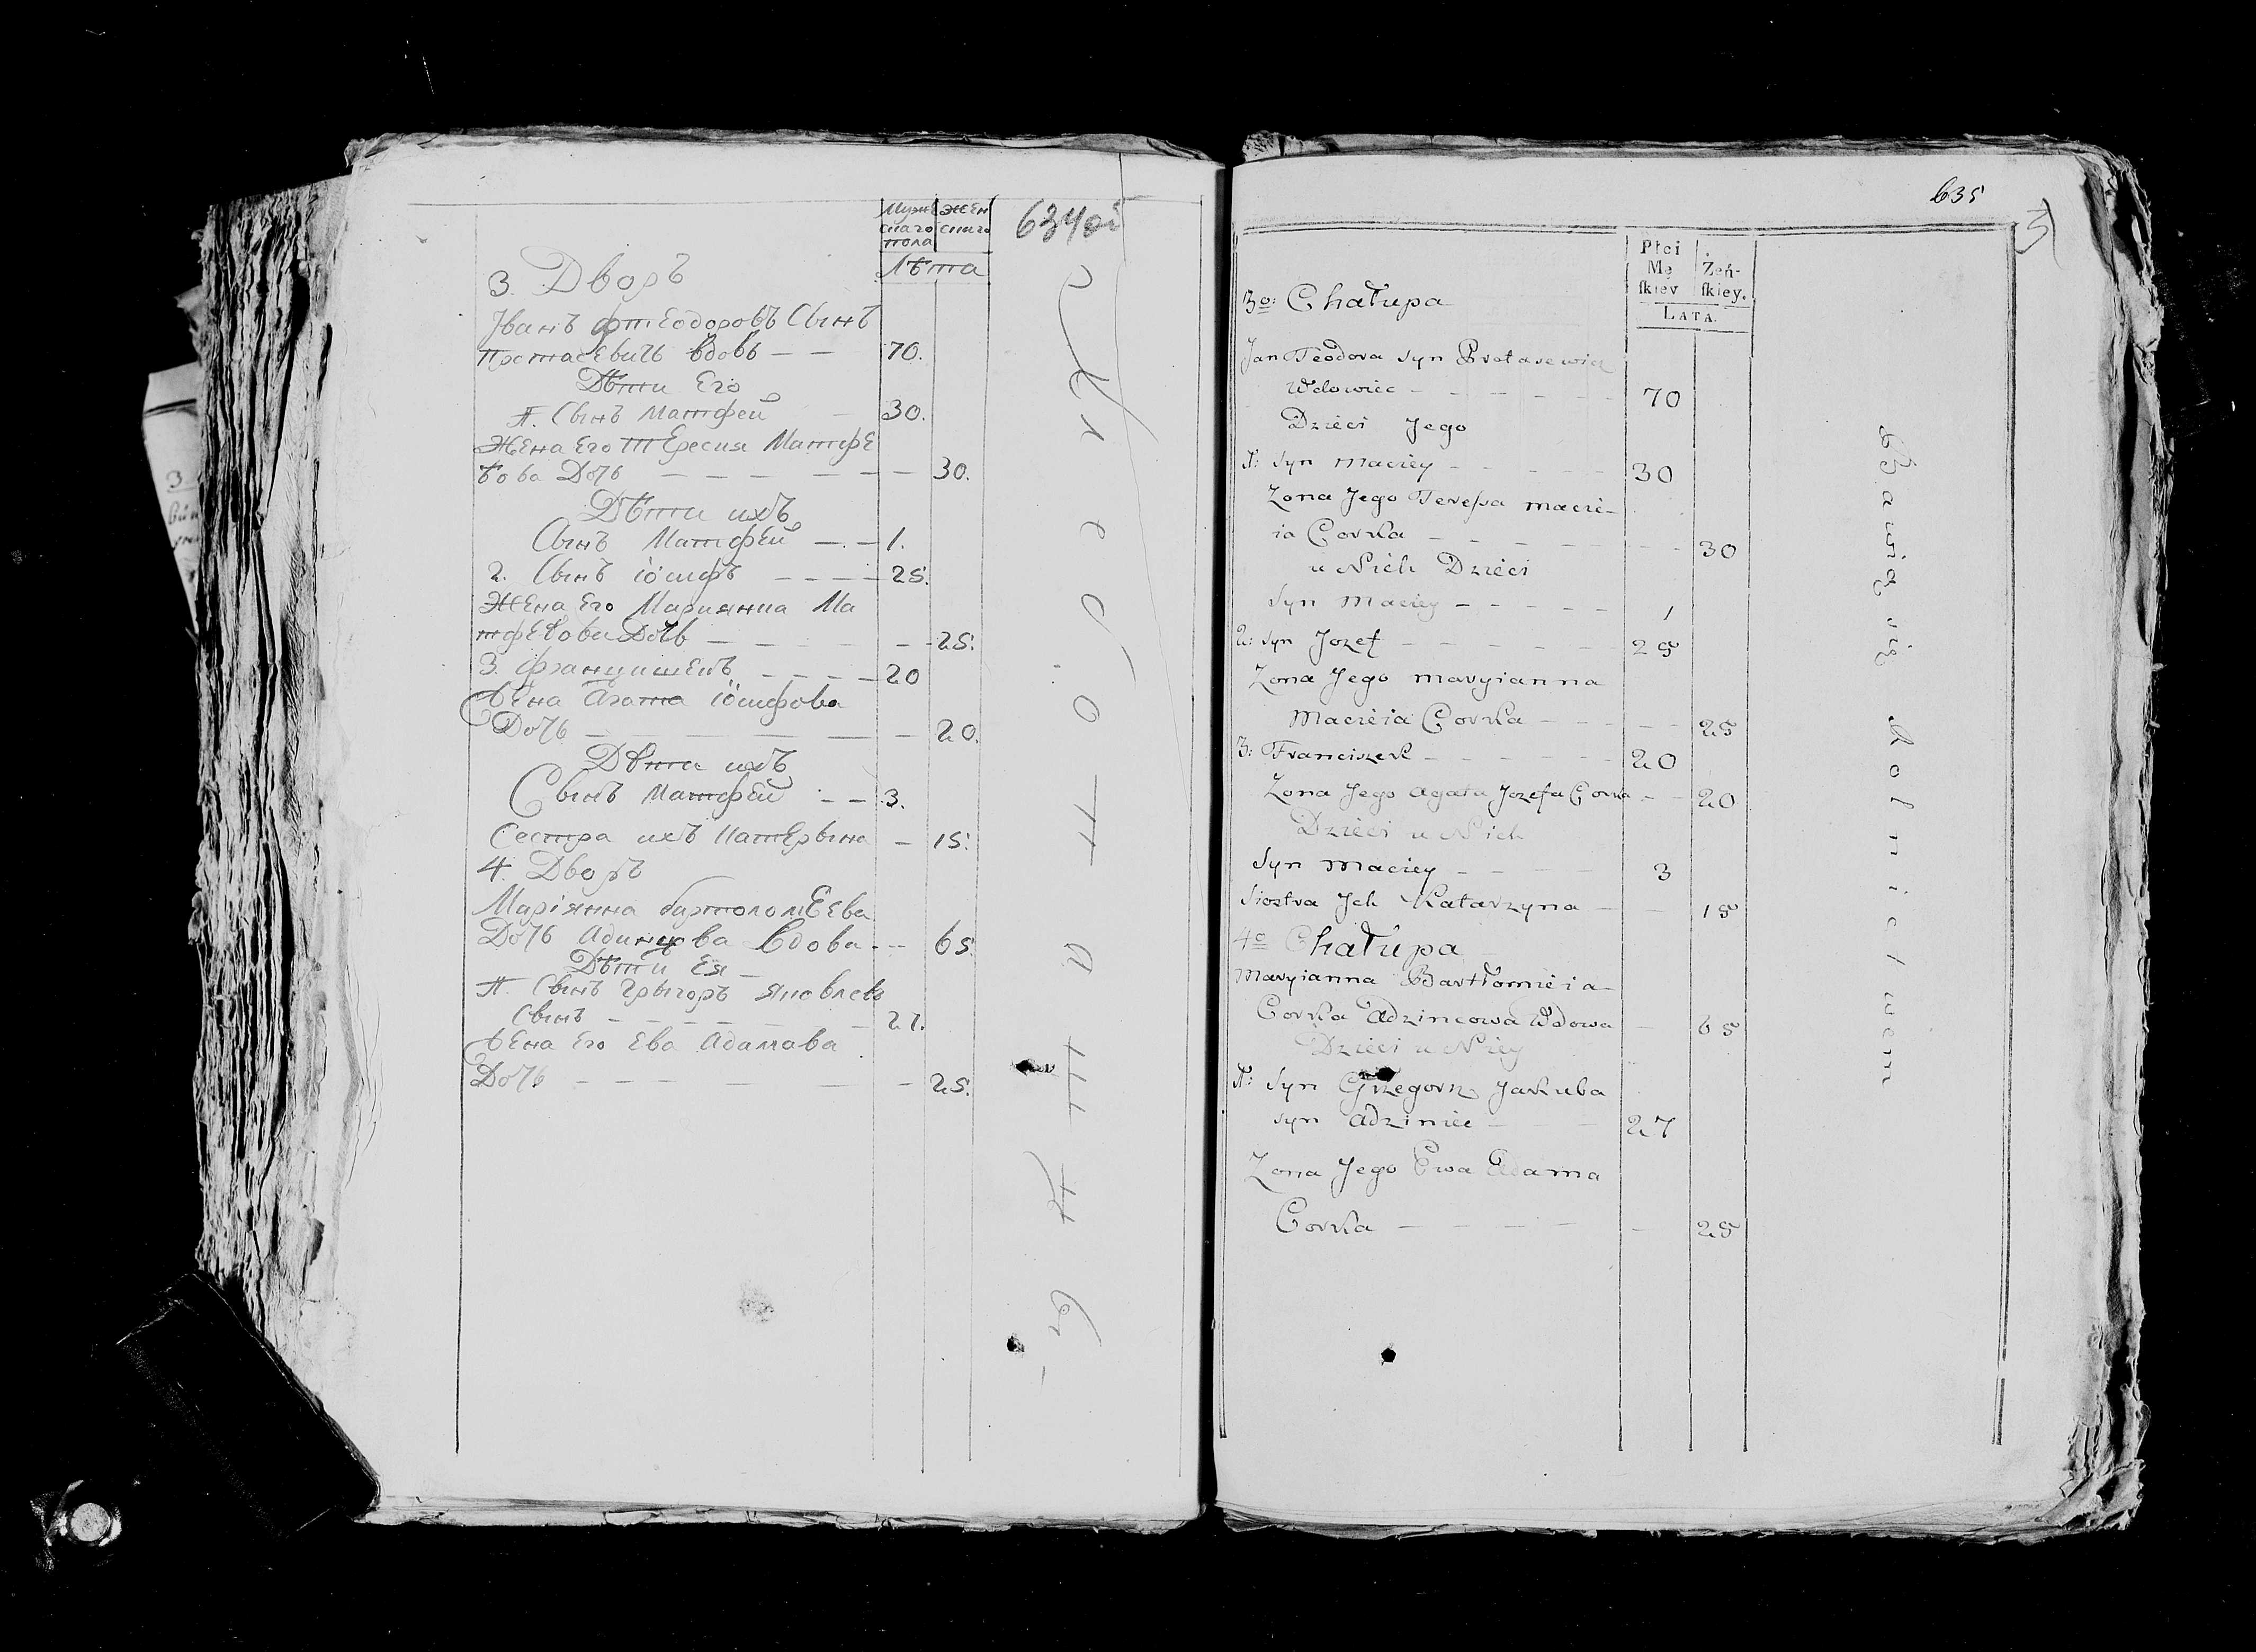 Мужескаго пола
Женскаго
634 об
Лѣта
3. Дворъ
Іванъ Фтеодоровъ Сынъ
Протасевичь вдовъ — — 70.
Дѣти Его
А. Сынъ Матфей — 30.
Жена Его Тересия Матфе
ѣова Дочь — — — — — 30.
Дѣти ихъ
Сынъ Матфей — — 1.
2. Сынъ іосифъ — — — — 25.
Жена Его Марианна Ма
тфеѣова Дочь — — — — 25.
3. францишекъ — — — — 20
Жена Агата іосифова
Дочь — — — — — — 20.
Дѣти ихъ
Сынъ Матфей — — 3.
Сестра ихъ Катерына — 15.
4. Дворъ
Маріянна бартоломЕева
Дочь Адинцова Вдова — — 65
Дѣти Ея
А. Сынъ Грыгоръ Яковлевъ
Сынъ — — — — — 27.
Жена Его Ева Адамава
Дочь — — — — — — 25.
635
Płci Męſkiey
Żeńſkiey.
LATA.
3o: Chałupa
Jan Teodora syn Protasewicz
Wdowiec — — — — — — 70
Dzieci Jego
A: Syn Maciey — — — — — 30
Zona Jego Teressa Macie-
ia Corka — — — — — — 30
u Nich Dzieci
Syn Maciey — — — — — 1
2: syn Jozef — — — — — — 25
Zona Jego Maryianna
Macieia Corka — — — — — 25
3: Franciszek — — — — — — 20
Zona Jego Agata Jozefa Corka — — 20
Dzieci u Nich
Syn Maciey — — — — 3
Siostra Jch Katarzyna — — 15
4o Chałupa
Maryianna Bartłomieia
Corka Adzincowa Wdowa — 65
Dzieci u Niey
A: Syn Grzegorz Jakuba
syn Adziniec — — — 27
Zona Jego Ewa Adama
Corka — — — — — — 25
Bawią się Rolnictwem